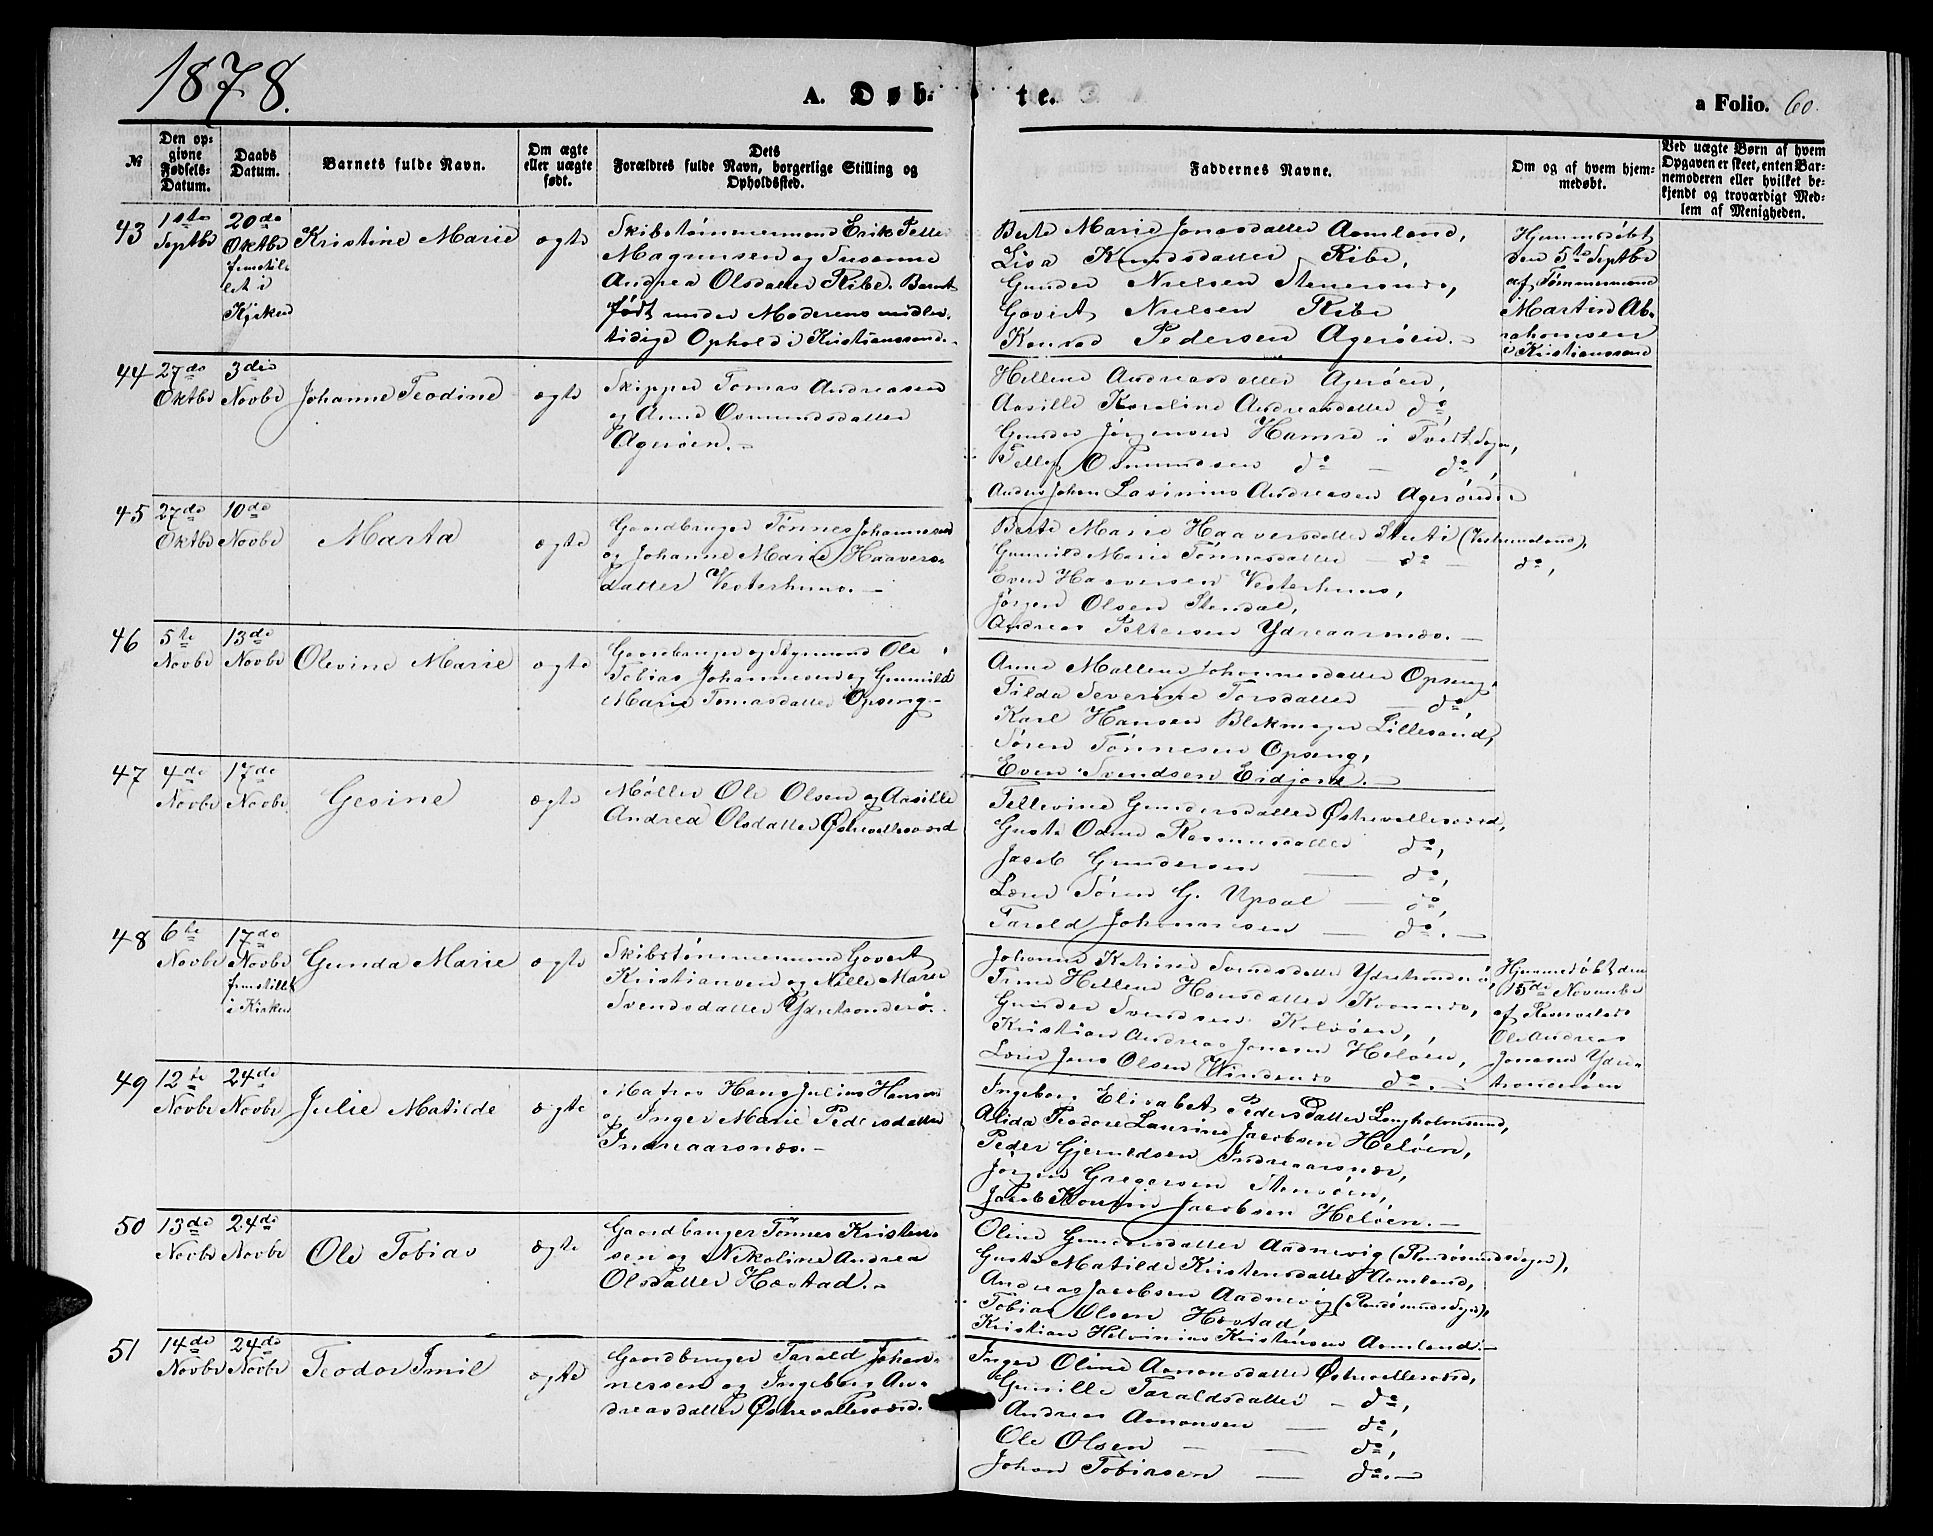 1878.
A. Døb-
te.
a Folio. 60.
№
Den op-
givne
Fødsels-
Datum.
Daabs
Datum.
Barnets fulde Navn.
Om ægte
eller uægte
født.
Dets
Forældres fulde Navn, borgerlige Stilling og
Opholdssted.
Faddernes Navne.
Om og af hvem hjem-
medøbt.
Ved uægte Børn af hvem
Opgaven er skeet, enten Bar-
nemoderen eller hvilket be-
kjendt og troværdigt Med-
lem af Menigheden.
43
1ste
Septbr
20de
Oktbr
fremstil-
let i
Kirken
Kristine Marie
ægte
Skibstømmermand Erik Teller
Magnusen og Susanne
Andrea Olsdatter Ribe. Barnet
født under Moderens midler-
tidige Ophold i Kristianssand.-
Berte Marie Jonasdatter Aamland,
Lisa Knudsdatter Ribe,
Gunder Nielsen
Govert Nielsen Ribe
Konrad Pedersen Agerøen.-
Hjemmedøbt
den 5te Septbr
af Tømmermand
Martin Ab-
rahamsen
i Kristianssand
44
27de
Oktbr
3die
Novbr
Johanne Teodine
ægte
Skipper Tomas Andreasen
og Anne Osmundsdatter
Agerøen.-
Hellene Andreasdatter Agerøen,
Aasille Karoline Andreasdatter do,
Gunder Jørgensen Hamre i Tveit Sogn,
Tellef Osmundsen do - do,
Anders Johan Lasinius Andreasen Agerøen.-
45
27de
Oktbr
10de
Novbr
Marta
ægte
Gaardbruger Tønnes Johannesen
og Johanne Marie Haavers-
datter Vesterhuus.-
Berte Marie Haaversdatter (Vestremoland),
Gunild Marie Tønnesdatter - do - do,
Even Haaversen Vesterhuus,
Jørgen Olsen Stendal,
Andreas Pettersen Ydreaarsnæs.-
46
5te
Novbr
13de
Novbr
Olevine Marie
ægte
Gaardbruger og Styrmand Ole
Tobias Johannesen og Gunild
Marie Tomasdatter Opseng.-
Anne Mallene Johannesdatter Opseng,
Tilda Severine Torsdatter - do,
Karl Hansen Blekmager Lillesand,
Søren Tønnesen Opseng,
Even Svendsen Eidjord.-
47
4de
Novbr
17de
Novbr
Gesine
ægte
Møller Ole Olsen og Aasille
Andrea Olsdatter Østrevallesværd
Tellevine Gundersdatter Østrevallesværd,
Gusta Odine Rasmusdatter do,
Jacob Gundersen - do,
Lærer Søren G. Upsal - do,
Tarald Johannesen - do.-
48
6te
Novbr
17de
Novbr
fremstillet
i Kirken
Gunda Marie
ægte
Skibstømmermand Govert
Kristiansen og Nille Marie
Svendsdatter
Johanne Katrine Svendsdatter
Trine Hellene Hansdatter
Gunder Svendsen
Kristian Andreas Jonasen Heløen,
Lærer Jens Olsen Windsnes do.-
Hjemmedøbt den
15de November
af
Ole Andreas
Jonasen
49
12te
Novbr
24de
Novbr
Julie Matilde
ægte
Matros Hans Julius Hansen
og Inger Marie Pedersdatter
Indreaarsnæs.-
Ingeborg Elisabet Pedersdatter Langholmsund,
Alida Teodore Laurine Jacobsen Heløen,
Peder Gjeruldsen Indreaarsnæs,
Jørgen Gregersen Stensøen,
Jacob Konsin Jacobsen Heløen.-
50
13de
Novbr
24de
Novbr
Ole Tobias
ægte
Gaardbruger Tønnes Kristen-
sen og Nikoline Andrea
Olsdatter Hæstad.-
Oline Gundersdatter Aadnevig (Randøsundsogn),
Gusta Matilde Kristensdatter Aamland,
Andreas Jacobsen Aadnevig (Randøsunds Sogn),
Tobias Olsen Hæstad,
Kristian Helvinius Kristensen Aamland.-
51
14de
Novbr
24de
Novbr
Teodor Emil
ægte
Gaardbruger Tarald Johan-
nessen og Ingeborg An-
dreasdatter Østrevallesværd.
Inger Oline Aanonsdatter Østrevallesværd,
Gunille Taraldsdatter - do,
Andreas Aanonsen - do,
Ole Olsen - - do,
Johan Tobiasen - do.-